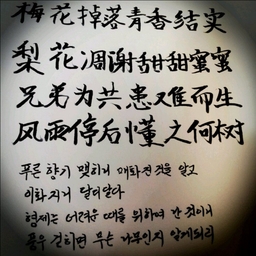 梅花掉落青香结实
梨花凋谢甜甜蜜蜜
兄弟为共患难而生
风雨停后懂之何树
푸른 향기 맺히니 매화진 것을 알고
이화지거 달디달다
형제는 어려운 때를 위하여 난 것이거
풍우 걷히면 무슨 나무인지 알게되리